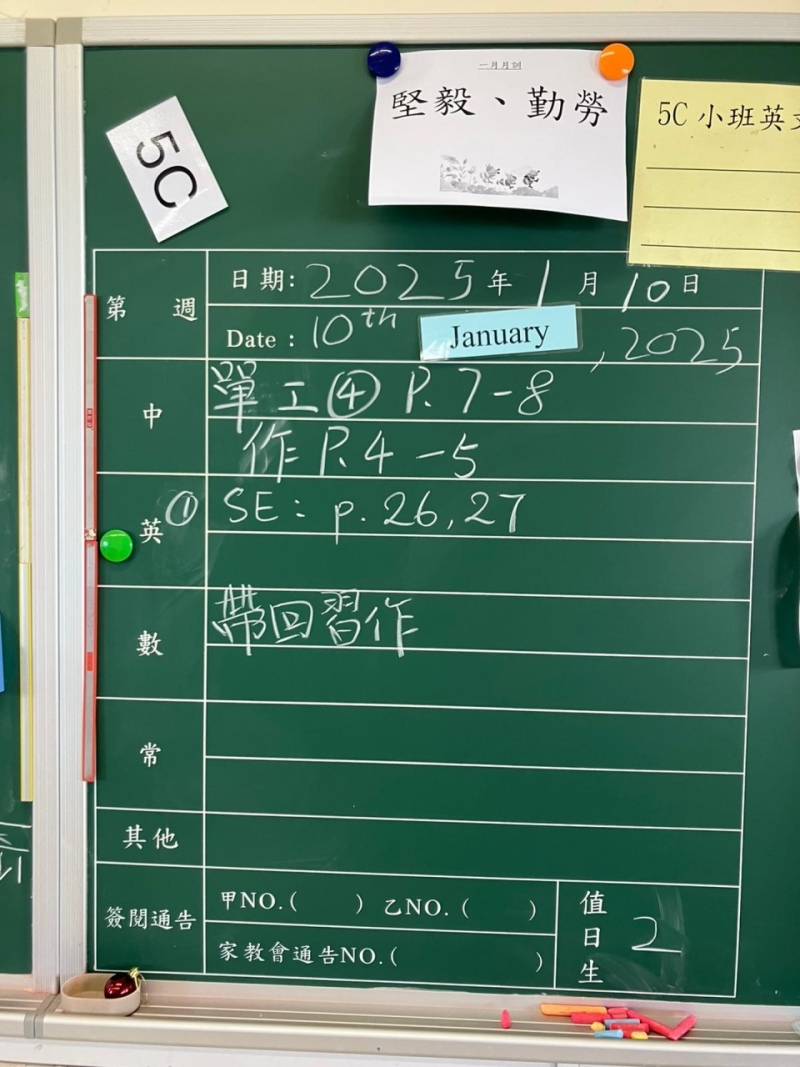 一月月訓
堅毅、勤勞
5C
5C 小班英文
第 週
日期: 2025 年 1 月 10 日
Date : 10th January , 2025
中
單工④ P. 7-8
作 P. 4-5
英 ①
SE: p. 26, 27
數
帶回習作
常
其他
簽閱通告
甲NO.( ) 乙NO.( )
家教會通告NO.( )
值日生
2